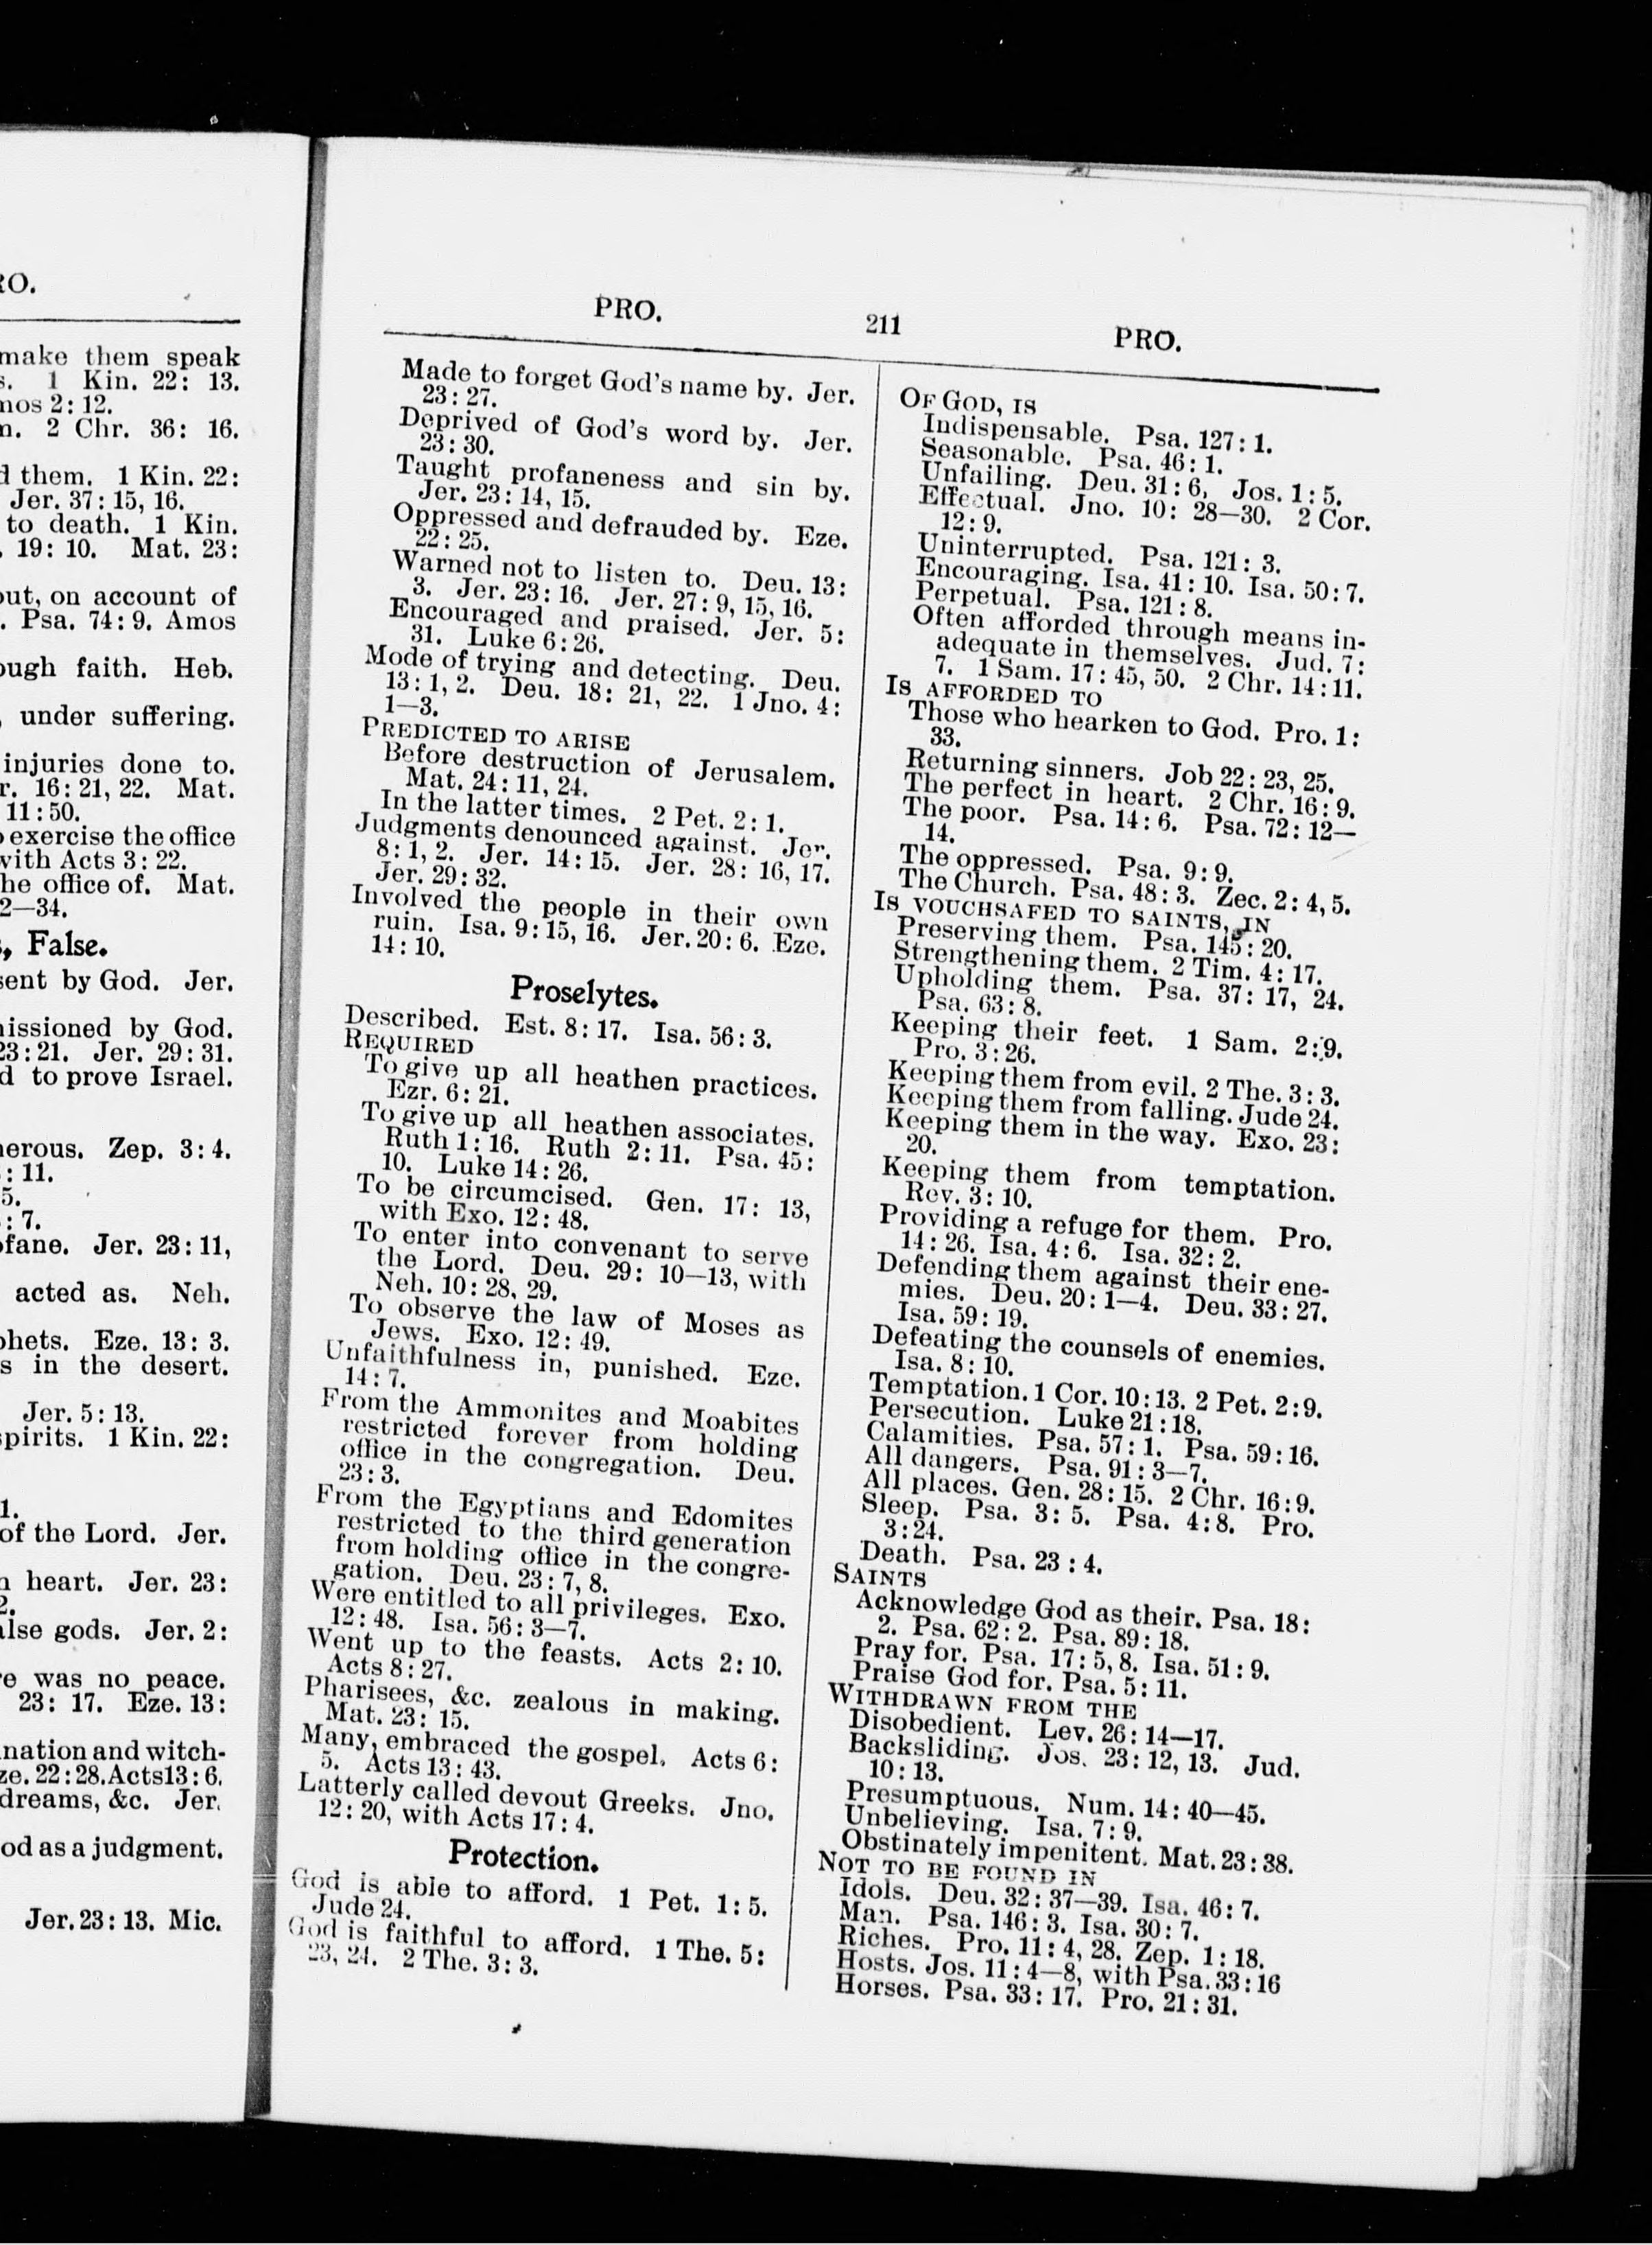 RO.
make them speak
s. 1 Kin. 22: 13.
mos 2: 12.
n. 2 Chr. 36: 16.
d them. 1 Kin. 22:
Jer. 37: 15, 16.
to death. 1 Kin.
. 19: 10. Mat. 23:
out, on account of
. Psa. 74: 9. Amos
ough faith. Heb.
, under suffering.
injuries done to.
r. 16: 21, 22. Mat.
11: 50.
o exercise the office
with Acts 3: 22.
he office of. Mat.
2—34.
s, False.
sent by God. Jer.
missioned by God.
23: 21. Jer. 29: 31.
d to prove Israel.
nerous. Zep. 3: 4.
: 11.
5.
: 7.
ofane. Jer. 23: 11,
acted as. Neh.
phets. Eze. 13: 3.
s in the desert.
Jer. 5: 13.
spirits. 1 Kin. 22:
1.
of the Lord. Jer.
n heart. Jer. 23:
2.
alse gods. Jer. 2:
re was no peace.
23: 17. Eze. 13:
nation and witch-
ze. 22: 28. Acts 13: 6.
dreams, &c. Jer.
od as a judgment.
Jer. 23: 13. Mic.
PRO. 211 PRO.
Made to forget God's name by. Jer.
23: 27.
Deprived of God's word by. Jer.
23: 30.
Taught profaneness and sin by.
Jer. 23: 14, 15.
Oppressed and defrauded by. Eze.
22: 25.
Warned not to listen to. Deu. 13:
3. Jer. 23: 16. Jer. 27: 9, 15, 16.
Encouraged and praised. Jer. 5:
31. Luke 6: 26.
Mode of trying and detecting. Deu.
13: 1, 2. Deu. 18: 21, 22. 1 Jno. 4:
1—3.
PREDICTED TO ARISE
Before destruction of Jerusalem.
Mat. 24: 11, 24.
In the latter times. 2 Pet. 2: 1.
Judgments denounced against. Jer.
8: 1, 2. Jer. 14: 15. Jer. 28: 16, 17.
Jer. 29: 32.
Involved the people in their own
ruin. Isa. 9: 15, 16. Jer. 20: 6. Eze.
14: 10.
Proselytes.
Described. Est. 8: 17. Isa. 56: 3.
REQUIRED
To give up all heathen practices.
Ezr. 6: 21.
To give up all heathen associates.
Ruth 1: 16. Ruth 2: 11. Psa. 45:
10. Luke 14: 26.
To be circumcised. Gen. 17: 13,
with Exo. 12: 48.
To enter into convenant to serve
the Lord. Deu. 29: 10—13, with
Neh. 10: 28, 29.
To observe the law of Moses as
Jews. Exo. 12: 49.
Unfaithfulness in, punished. Eze.
14: 7.
From the Ammonites and Moabites
restricted forever from holding
office in the congregation. Deu.
23: 3.
From the Egyptians and Edomites
restricted to the third generation
from holding office in the congre-
gation. Deu. 23: 7, 8.
Were entitled to all privileges. Exo.
12: 48. Isa. 56: 3—7.
Went up to the feasts. Acts 2: 10.
Acts 8: 27.
Pharisees, &c. zealous in making.
Mat. 23: 15.
Many, embraced the gospel. Acts 6:
5. Acts 13: 43.
Latterly called devout Greeks. Jno.
12: 20, with Acts 17: 4.
Protection.
God is able to afford. 1 Pet. 1: 5.
Jude 24.
God is faithful to afford. 1 The. 5:
23, 24. 2 The. 3: 3.
OF GOD, IS
Indispensable. Psa. 127: 1.
Seasonable. Psa. 46: 1.
Unfailing. Deu. 31: 6, Jos. 1: 5.
Effectual. Jno. 10: 28—30. 2 Cor.
12: 9.
Uninterrupted. Psa. 121: 3.
Encouraging. Isa. 41: 10. Isa. 50: 7.
Perpetual. Psa. 121: 8.
Often afforded through means in-
adequate in themselves. Jud. 7:
7. 1 Sam. 17: 45, 50. 2 Chr. 14: 11.
IS AFFORDED TO
Those who hearken to God. Pro. 1:
33.
Returning sinners. Job 22: 23, 25.
The perfect in heart. 2 Chr. 16: 9.
The poor. Psa. 14: 6. Psa. 72: 12—
14.
The oppressed. Psa. 9: 9.
The Church. Psa. 48: 3. Zec. 2: 4, 5.
IS VOUCHSAFED TO SAINTS, IN
Preserving them. Psa. 145: 20.
Strengthening them. 2 Tim. 4: 17.
Upholding them. Psa. 37: 17, 24.
Psa. 63: 8.
Keeping their feet. 1 Sam. 2: 9.
Pro. 3: 26.
Keeping them from evil. 2 The. 3: 3.
Keeping them from falling. Jude 24.
Keeping them in the way. Exo. 23:
20.
Keeping them from temptation.
Rev. 3: 10.
Providing a refuge for them. Pro.
14: 26. Isa. 4: 6. Isa. 32: 2.
Defending them against their ene-
mies. Deu. 20: 1—4. Deu. 33: 27.
Isa. 59: 19.
Defeating the counsels of enemies.
Isa. 8: 10.
Temptation. 1 Cor. 10: 13. 2 Pet. 2: 9.
Persecution. Luke 21: 18.
Calamities. Psa. 57: 1. Psa. 59: 16.
All dangers. Psa. 91: 3—7.
All places. Gen. 28: 15. 2 Chr. 16: 9.
Sleep. Psa. 3: 5. Psa. 4: 8. Pro.
3: 24.
Death. Psa. 23: 4.
SAINTS
Acknowledge God as their. Psa. 18:
2. Psa. 62: 2. Psa. 89: 18.
Pray for. Psa. 17: 5, 8. Isa. 51: 9.
Praise God for. Psa. 5: 11.
WITHDRAWN FROM THE
Disobedient. Lev. 26: 14—17.
Backsliding. Jos. 23: 12, 13. Jud.
10: 13.
Presumptuous. Num. 14: 40—45.
Unbelieving. Isa. 7: 9.
Obstinately impenitent. Mat. 23: 38.
NOT TO BE FOUND IN
Idols. Deu. 32: 37—39. Isa. 46: 7.
Man. Psa. 146: 3. Isa. 30: 7.
Riches. Pro. 11: 4, 28. Zep. 1: 18.
Hosts. Jos. 11: 4—8, with Psa. 33: 16
Horses. Psa. 33: 17. Pro. 21: 31.